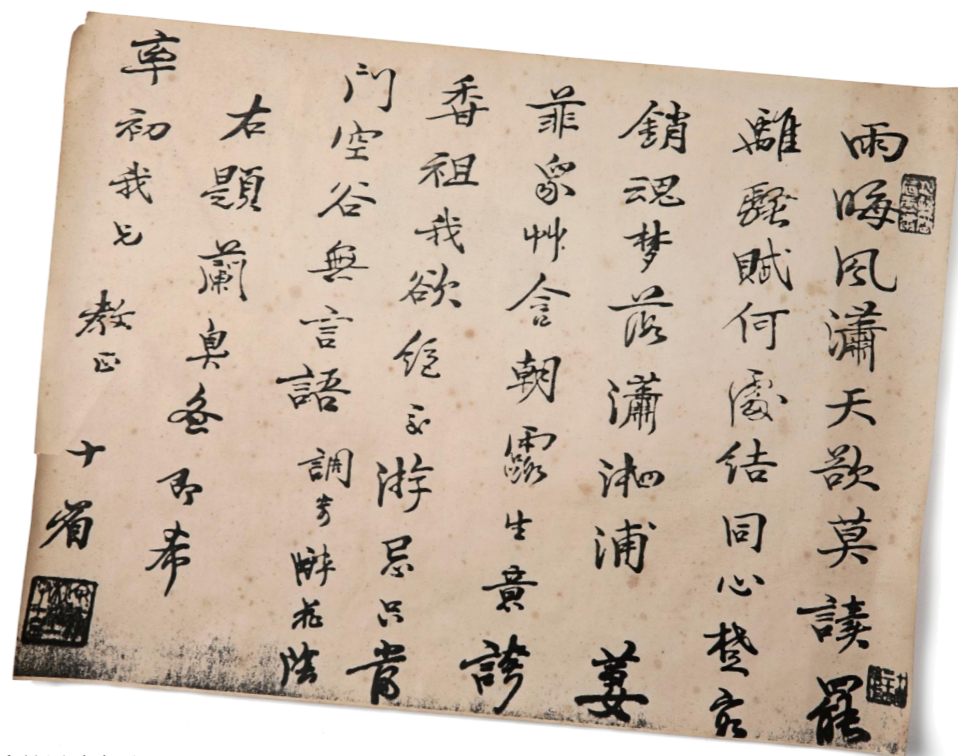 雨晦風瀟天欲莫讀罷
離騷賦何處結同心楚客
銷魂夢落瀟湘浦 萋
菲象艸含朝露生黄
香祖我欲絕交游忌只當
門空谷無言語 調寄醉花陰
右題蘭臭 即希
率初我兄 教正 十眉